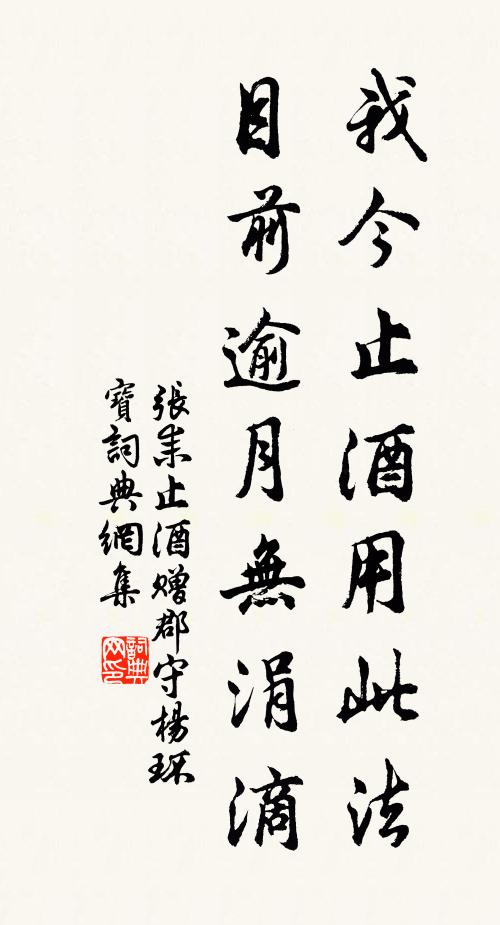 我今止酒用此法
目前逾月無涓滴
張耒止酒贈郡守楊環
寶詞典網集
詞典
网印